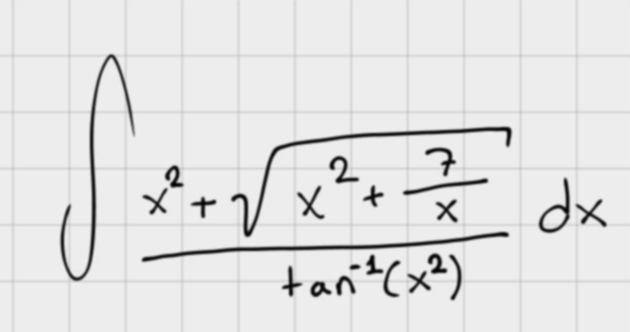 ∫ (x² + √(x² + 7/x)) / (tan⁻¹(x²)) dx